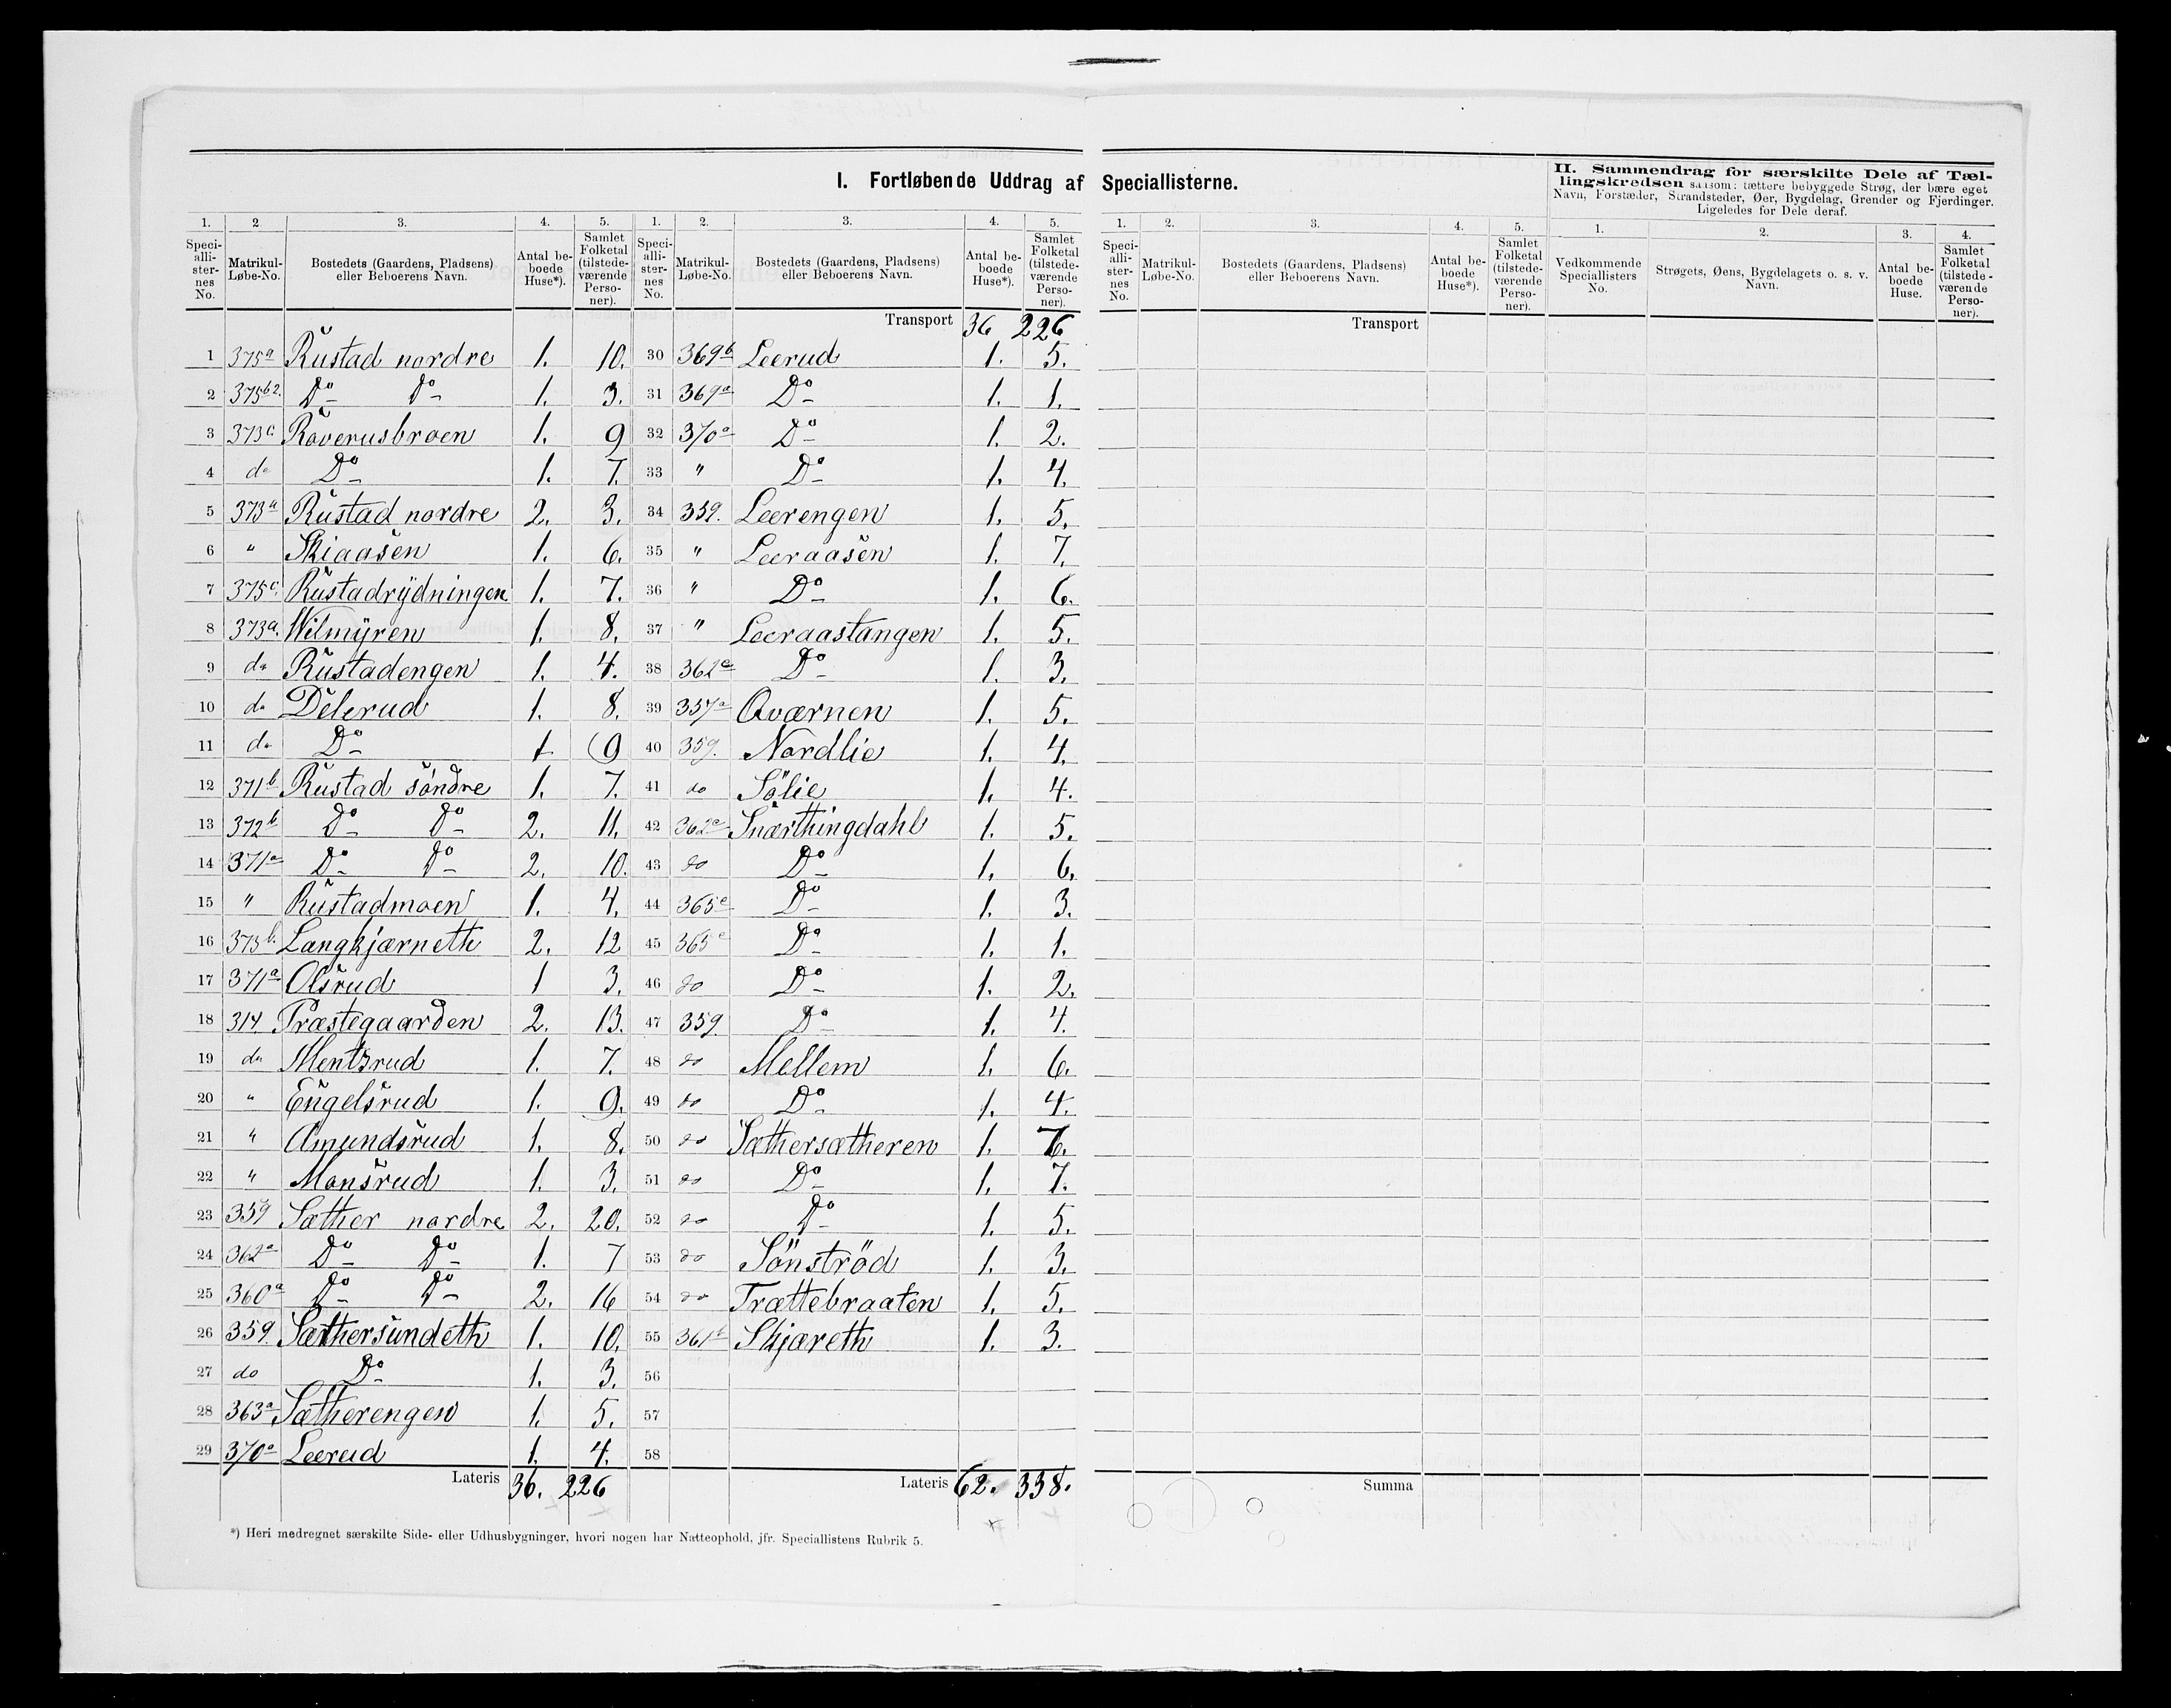 I. Fortløbende Uddrag af Speciallisterne.
II. Sammendrag for særskilte Dele af Tæl-
lingskredsen saasom: tættere bebyggede Strøg, der bære eget
Navn, Forstæder, Strandsteder, Øer, Bygdelag, Grender og Fjerdinger.
Ligeledes for Dele deraf.
1. 2. 3. 4. 5. 1. 2. 3. 4. 5.
Speci-alli-ster-nes No. Matrikul-Løbe-No. Bostedets (Gaardens, Pladsens) eller Beboerens Navn. Antal be-boede Huse*). Samlet Folketal (tilstede-værende Perso-ner). Speci-alli-ster-nes No. Matrikul-Løbe-No. Bostedets (Gaardens, Pladsens) eller Beboerens Navn. Antal be-boede Huse*). Samlet Folketal (tilstede-værende Perso-ner).
Transport 36 226
1 375a Rustad nordre 1. 10.
2 375b2. Do Do 1. 3.
3 373c Roverusbroen 1. 9
4 do Do 1. 7.
5 373a Rustad nordre 2. 3.
6 " Skiaasen 1. 6.
7 375c. Rustadrydningen 1. 7.
8 373a. Wilmyren 1. 8.
9 do Rustadengen 1. 4.
10 do Delerud 1. 8.
11 do Do 1 9
12 371b Rustad söndre 1. 7.
13 372b Do Do 2. 11.
14 371a Do Do 2. 10.
15 " Rustadmoen 1. 4.
16 373b. Langkjærneth 2. 12
17 371a Olsrud 1 3.
18 314 Præstegaarden 2. 13.
19 do Mentsrud 1. 7.
20 " Engelsrud 1. 9.
21 " Amundsrud 1. 8.
22 " Monsrud 1. 3.
23 359 Sæther nordre 2. 20.
24 362a Do Do 1. 7
25 360a Do Do 2. 16
26 359. Sæthersundeth 1. 10.
27 do Do 1. 3.
28 363a Sætherengen 1. 5.
29 370a Leerud 1. 4.
Lateris 36. 226
30 369b Leerud 1. 5.
31 369a Do 1. 1.
32 370a Do 1. 2.
33 " Do 1. 4.
34 359. Leerengen 1. 5.
35 " Leeraasen 1. 7.
36 " Do 1. 6.
37 " Leeraastangen 1. 5.
38 362a Do 1. 3.
39 357a Qværnen 1. 5.
40 359. Nordlie 1. 4.
41 do Sölie 1. 4.
42 362a Snærthingdahl 1. 5.
43 do Do 1. 6.
44 365e Do 1. 3.
45 365e Do 1. 1.
46 do Do 1. 2.
47 359 Do 1. 4.
48 do Mellem 1. 6.
49 do Do 1. 4.
50 do Sæthersætheren 1. 6.
51 do Do 1. 7.
52 do Do 1. 5.
53 do Sönströd 1. 3.
54 do Trættebraaten 1. 5.
55 361b Skjæreth 1. 3.
56
57
58
Lateris 62. 338.
*) Heri medregnet særskilte Side- eller Udhusbygninger, hvori nogen har Natteophold, jfr. Speciallistens Rubrik 5.
1. 2. 3. 4. 5.
Speci-alli-ster-nes No. Matrikul-Løbe-No. Bostedets (Gaardens, Pladsens) eller Beboerens Navn. Antal be-boede Huse*). Samlet Folketal (tilstede-værende Perso-ner).
Transport
Summa
1. 2. 3. 4.
Vedkommende Speciallisters No. Strøgets, Øens, Bygdelagets o. s. v. Navn. Antal be-boede Huse. Samlet Folketal (tilstede-værende Perso-ner).